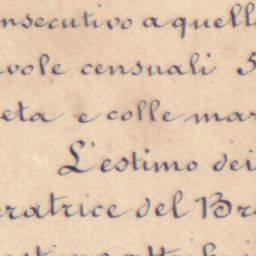 nsecutivo a quell
vole censuali 5
eta e colle mar
L'estimo dei
ratrice del Br